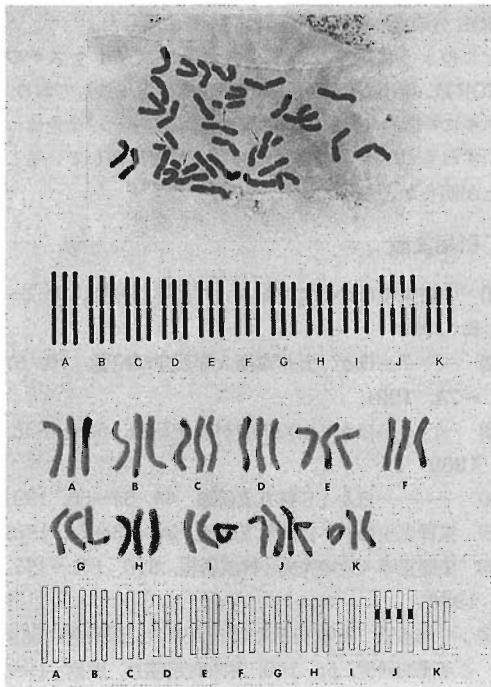 A B C D E F G H I J K
A B C D E F
G H I J K
A B C D E F G H I J K